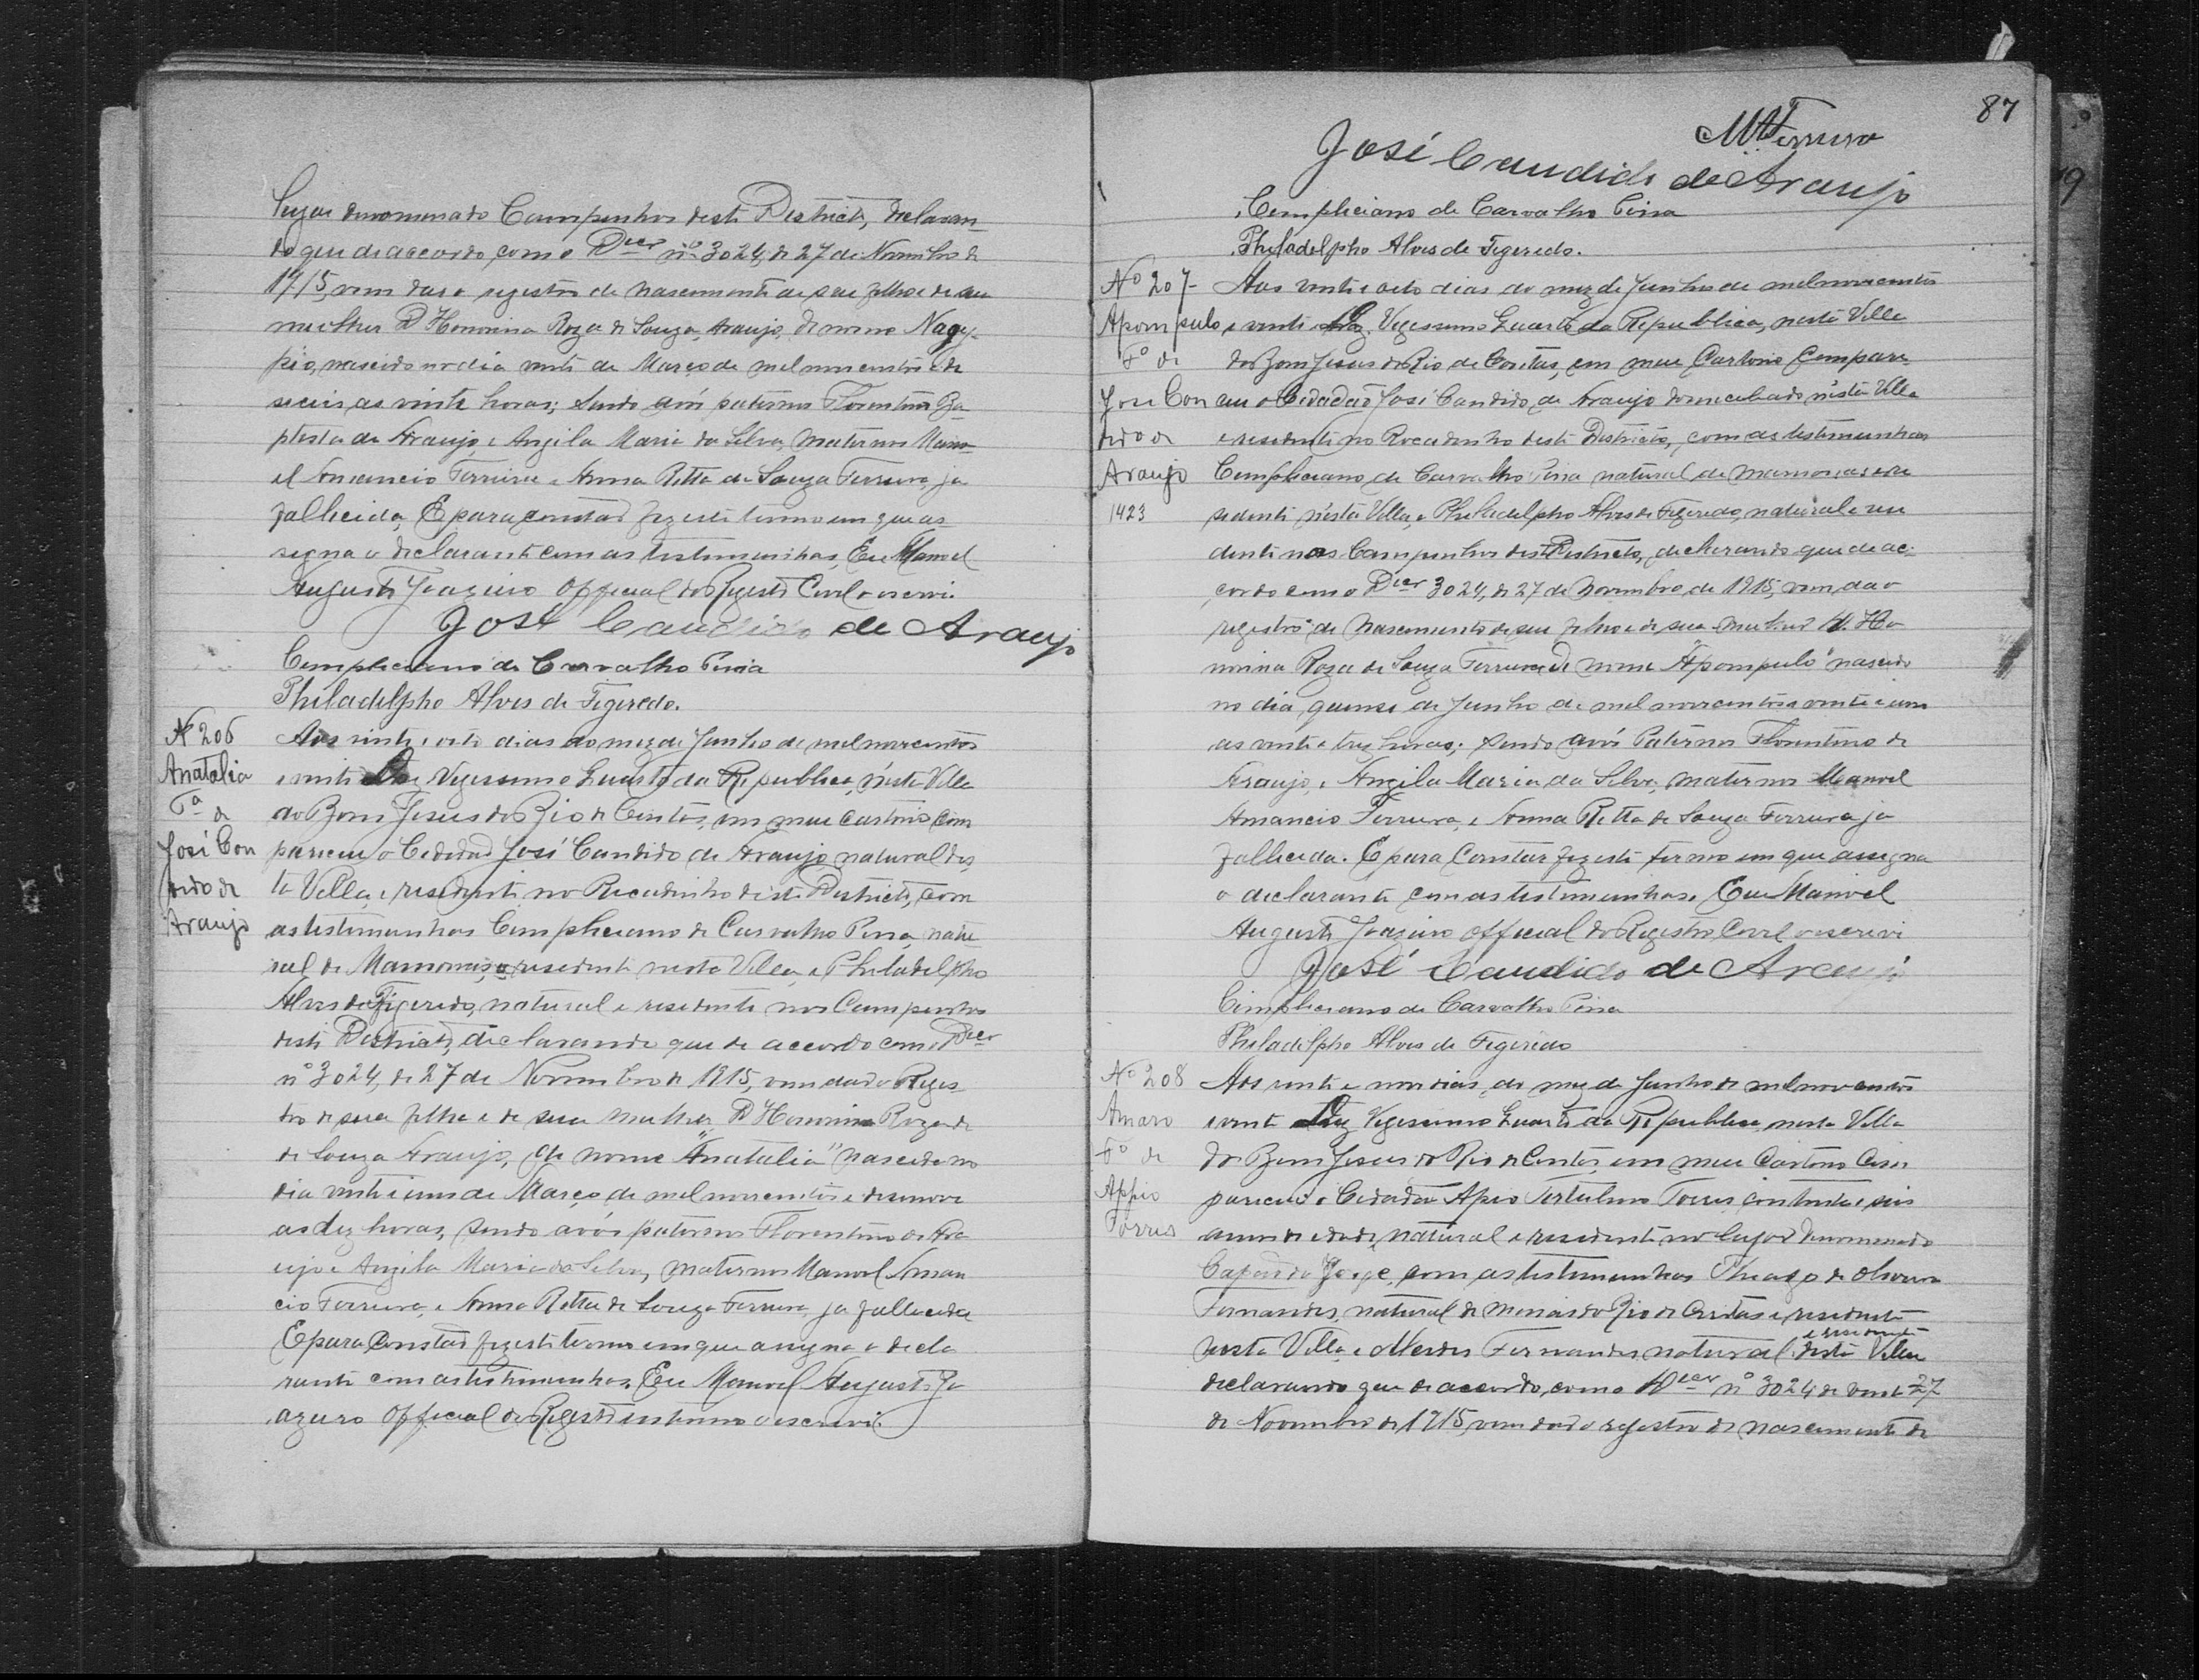 lugar denomenado Campinhos desti Districto, declaran-
do que de accordo com o Decr nº 3024, de 27 de Novembro de
1915, vem dar o registro de nascimento de seu filho e de sua
mulher D Honorina Roza de Souza Araujo, de nome
nascido no dia vinte de Março de mil novecentos e de
seis, as vinte horas; sendo avós paternos Florentino Ba
ptista de Araujo, e Angela Maria da Silva, maternos Mano-
el Amancio Ferreira e Anna Ritta de Souza Ferreira, ja
fallecida. E para constar fiz este termo em que as-
signa o declarante com as testimunhas, Eu Manoel
Augusto Joazeiro Official do Registo Civil o escrevi.
José Candido de Araujo
Cempliciano de Carvalho
Philadelpho Alves de Figeredo.
Nº 206
Anatalia
Fª de
José Can
dido de
Araujo
Aos vinte e oito dias do mez de Junho de mil novecentos
e vinte Vigessimo Quarto da Republica, nésta Villa
do Bom Jesus do Rio de Contas, em meu cartorio com
pareceu o Cidadão José Candido de Araujo natural des
ta Villa, e residente no Rocadinho deste Districto, com
as testimunhas Cempliciano de Carvalho natu
ral de residente nesta Villa, e Philadelpho
Alves de Figeredo, natural e residente nos Campinhos
desti Districto, declarando que de accordo com o Decr
nº 3024, de 27 de Novembro de 1915, vem dar o Regis
tro de sua filha e de sua mulher D Honorina Roza de
de Souza Araujo, de nome "Anatalia" nascida no
dia vinte e um de Março de mil novecentos e desenove
as dez horas, sendo avós paternos Florentino de Ara
ujo e Angela Maria da Silva, maternos Manoel Aman
cio Ferreira, e Anna Ritta de Souza Ferreira, ja fallecida
E para constar fiz esti termo em que assigna o decla
rante com as testimunhas, Eu Manoel Augusto Jo
azeiro Official do Registo o escrevi.
87
Ferreira
José Candido de Araujo
Cempliciano de Carvalho
Philadelpho Alves de Figeredo.
Nº 207-
Apompulo
Fº de
José Can
dido de
Araujo
1423
Aos vinte e oito dias do mez de Junho de mil novecentos
e vinte Vigessimo Quarto da Republica, nesta Villa
do Bom Jesus do Rio de Contas, em meu Cartorio Compare
ceu o Cidadão José Candido de Araujo domiciliado nésta Villa
e residente no Rocadinho desti Districto, com as testimunhas
Cempliciano de Carvalho natural de
sidente nésta Villa, e Philadelpho Alves de Figeredo, natural e resi
dente nos Campinhos desti Districto, declarando que de ac-
cordo com o Decr 3024, de 27 de Novembro de 1915, vem dar o
registro de nascimento de seu filho e de sua mulher D. Ho
norina Roza de Souza Ferreira de nome "Apompulo" nascido
no dia quinze de Junho de mil novecentos e vinte e um
as vinte e trez horas; sendo avós Paternos Florentino de
Araujo, e Angela Maria da Silva, maternos Manoel
Amancio Ferreira, e Anna Ritta de Souza Ferreira ja
fallecida. E para Constar fiz esti termo em que assigna
o declarante com as testimunhas. Eu Manoel
Augusto Joazeiro official do Registro Civil o escrevi
José Candido de Araujo
Cimpliciano de Carvalho
Philadelpho Alves de Figeredo
Nº 208
Amaro
Fº de
Appio
Torres
Aos vinte e nove dias do mez de Junho de mil novecentos
e vinte Vigessimo Quarto da Republica, nesta Villa
do Bom Jesus do Rio de Contas, em meu Cartorio Com
pareceu o Cidadão Apio Tertulino Torres, com trinta e seis
annos de idade, natural e residente no lugar denomenado
com as testimunhas Thiago de Oliveira
Fernandes, natural de Minas do Rio de Contas e residente
nesta Villa, e Fernandes, natural e residente desta Villa
declarando que de accordo, com o Decr nº 3024, de 27
de Novembro de 1915, vem dar o registro de nascimento de